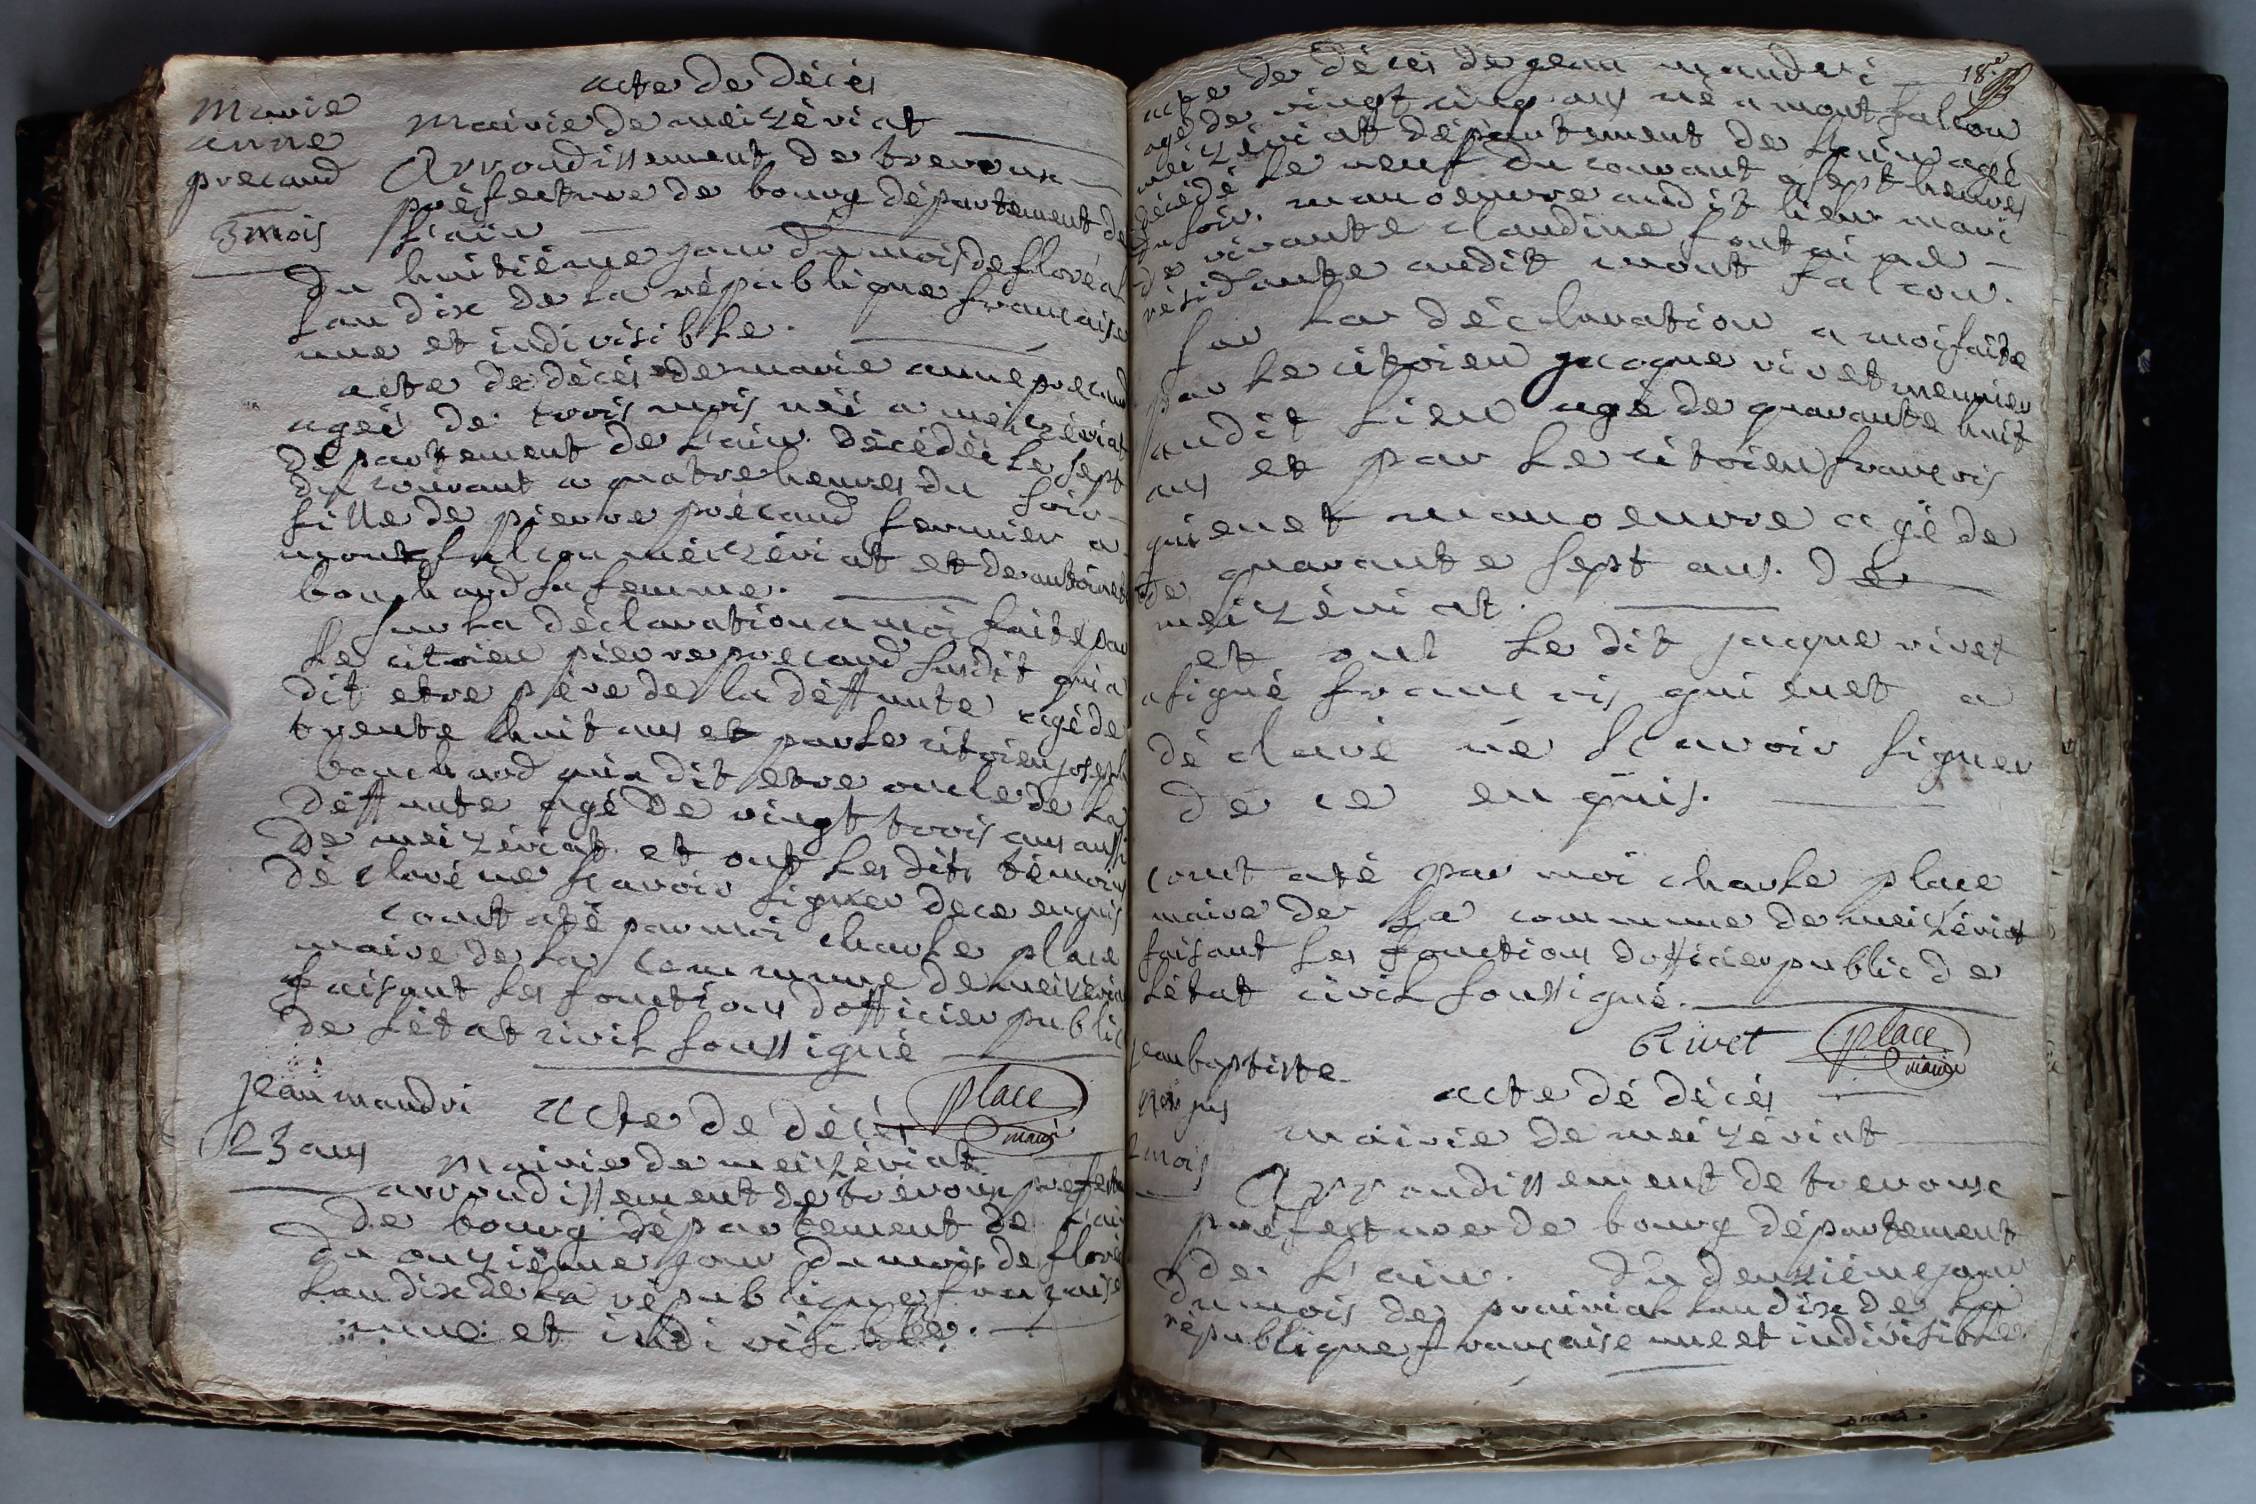 acte de décés
Marie
anne
precaud
3 mois
Mairie de meizériat
Arrondissement de trevoux
préfecture de bourg département de
l'ain
du huitième jour du mois de floréal
lan dix de la république française
une et indivisible.
acte de décés de marie anne precaud
ageé de trois mois neé a meizériat
département de l'ain. décédeé le sept
du courant a quatre heures du soir
fille de pierre précaud fermier a
montfalcon meizériat et de antoinet
bouchard sa femme.
sur la déclaration a moi faite par
le citoien pierre precaud susdit qui a
dit etre pére de la déffunte agé de
trente huit ans et par le citoien joseph
bouchard qui a dit etre oncle de la
déffunte agé de vingt trois ans aussi
de meizériat. et ont les dits témoins
déclaré ne scavoir signer de ce enquis
constaté par moi charle place
maire de la commune de meizériat
faisant les fonctions dofficier public
de l'état civil soussigné
place
maire
jean mandri
25 ans
acte de décés
Mairie de meizériat
arrondissement de trévoux prefectu
de bourg département de l'ain
du onzième jour du mois de floréa
lan dix de la république françaises
une et indivisible.
18e
acte de décés de jean mandri
agé de vingt cinq ans né a montfalcon
meizériat département de l'ain agé
décédé le neuf du courant a sept heures
du soir. manoeuvre audit lieu mari
de vivante claudine fontaine
résidante audit mont falcon.
sur la déclaration a moi faite
par le citoien jacque rivet meunier
audit lieu agé de quarante huit
ans et par le citoien françois
quienet manoeuvre agé de
de quarante sept ans. de
meizériat.
et ont le dit jacque rivet
a signé françois quienet a
déclaré ne scavoir signer
de ce enquis.
constaté par moi charle place
maire de la commune de meizériat
faisant les fonctions dofficier public de
l'état civil soussigné.
Rivet place
maire
jean baptiste
2 mois
acte dé décés
mairie de meizériat
Arrondissement de trevoux
préfecture de bourg département
de l'ain. du deuzième jour
du mois de prairial lan dix de la
république française une et indivisible.